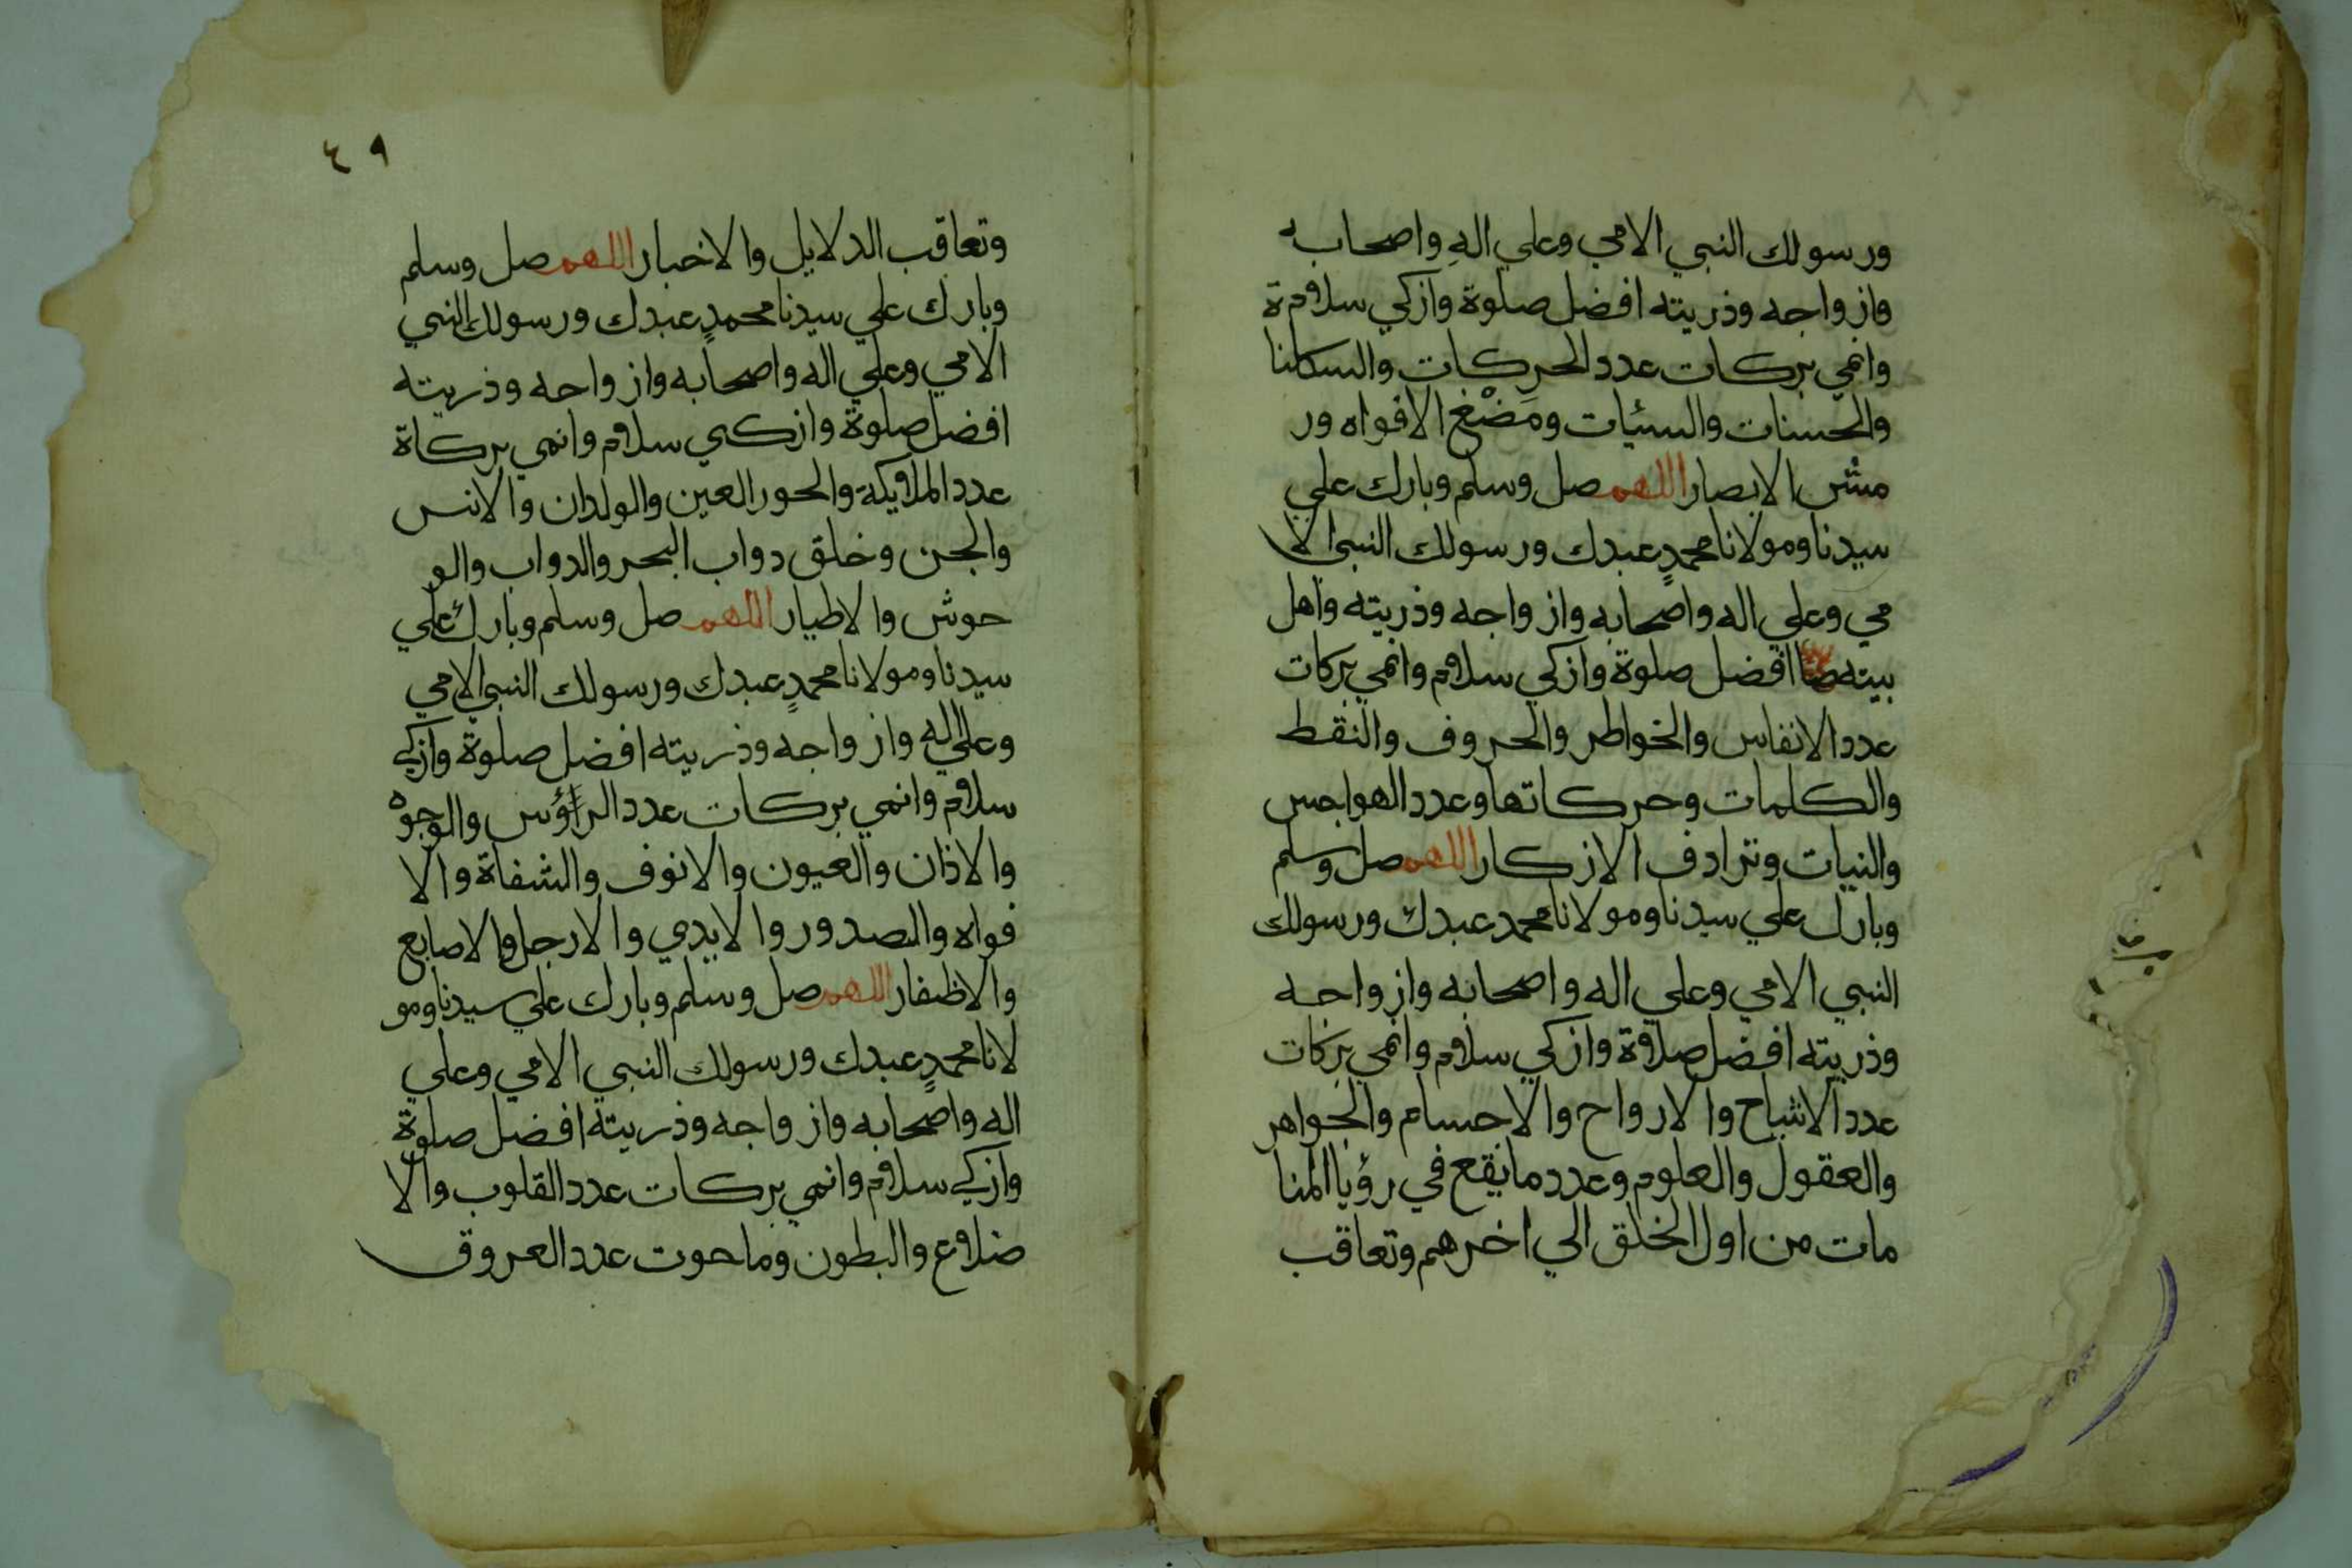 ورسولك النبي الامي وعلي الهِ واصحابه
وازواجه وذريته افضل صلوة وازكي سلام ة
وانمي بركات عدد الحركات والسكنا
والحسنات والسئيات ومَضْغ الافواه ور
مش الابصار اللهم صل وسلم وبارك علي
سيدنا ومولانا محمدٍ عبدك ورسولك النبي الا
مي وعلي اله واصحابه وازواجه وذريته واهل
بيته افضل صلوة وازكي سلام وانمي بركات
عدد الانفاس والخواطر والحروف والنقط
والكلمات وحركاتها وعدد الهواجس
والنيات وترادف الازكار اللهم صل وسلم
وبارك علي سيدنا ومولانا محمد عبدك ورسولك
النبي الامي وعلي اله واصحابه وازواجه
وذريته افضل صلاة وازكي سلام وانمي بركات
عدد الاشباح والارواح والاجسام والجواهر
والعقول والعلوم وعدد ما يقع في رؤيا المنا
مات من اول الخلق الي اخرهم وتعاقب
٤٩
وتعاقب الدلايل والاخبار اللهم صل وسلم
وبارك علي سيدنا محمدٍ عبدك ورسولك النبي
الامي وعلي اله واصحابه وازواجه وذريته
افضل صلوة وازكي سلام وانمي بركاة
عدد الملايكة والحور العين والولدان والانس
والجن وخلق دواب البحر والدواب والو
حوش والاطيار اللهم صل وسلم وبارك علي
سيدنا ومولانا محمدٍ عبدك ورسولك النبي الامي
وعلي اله وازواجه وذريته افضل صلوة وازكي
سلام وانمي بركات عدد الراؤس والوجوه
والاذان والعيون والانوف والشفاة والا
فواه والصدور والايدي والارجل والاصابع
والاظفار اللهم صل وسلم وبارك علي سيدنا ومو
لانا محمدٍ عبدك ورسولك النبي الامي وعلي
اله واصحابه وازواجه وذريته افضل صلوة
وازكي سلام وانمي بركات عدد القلوب والا
ضلاع والبطون وما حوت عدد العروق